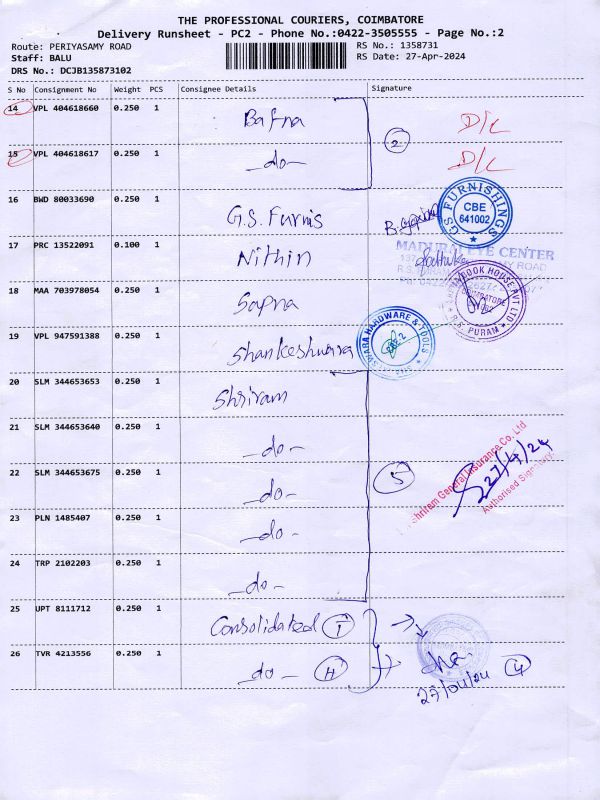 THE PROFESSIONAL COURIERS, COIMBATORE
Delivery Runsheet - PC2 - Phone No.:0422-3505555 - Page No.:2
Route: PERIYASAMY ROAD RS No.: 1358731
Staff: BALU RS Date: 27-Apr-2024
DRS No.: DCJB135873102
S No Consignment No Weight PCS Consignee Details Signature
14 VPL 404618660 0.250 1 Bafna D/L
2
15 VPL 404618617 0.250 1 -do- D/L
16 BWD 80033690 0.250 1 G.S. Furnis
GS FURNISHINGS CBE 641002
17 PRC 13522091 0.100 1 Nithin
MADURAI EYE CENTER
18 MAA 703978054 0.250 1 Sapna
BOOK HOUSE PVT LTD R.S. PURAM
19 VPL 947591388 0.250 1 Shankeshwara
HARDWARE & TOOLS
20 SLM 344653653 0.250 1 Shriram
21 SLM 344653640 0.250 1 -do-
22 SLM 344653675 0.250 1 -do-
5
Shriram General Insurance Co. Ltd
27/4/24
Authorised Signatory
23 PLN 1485407 0.250 1 -do-
24 TRP 2102203 0.250 1 -do-
25 UPT 8111712 0.250 1 Consolidated
26 TVR 4213556 0.250 1 -do-
27/04/24 4